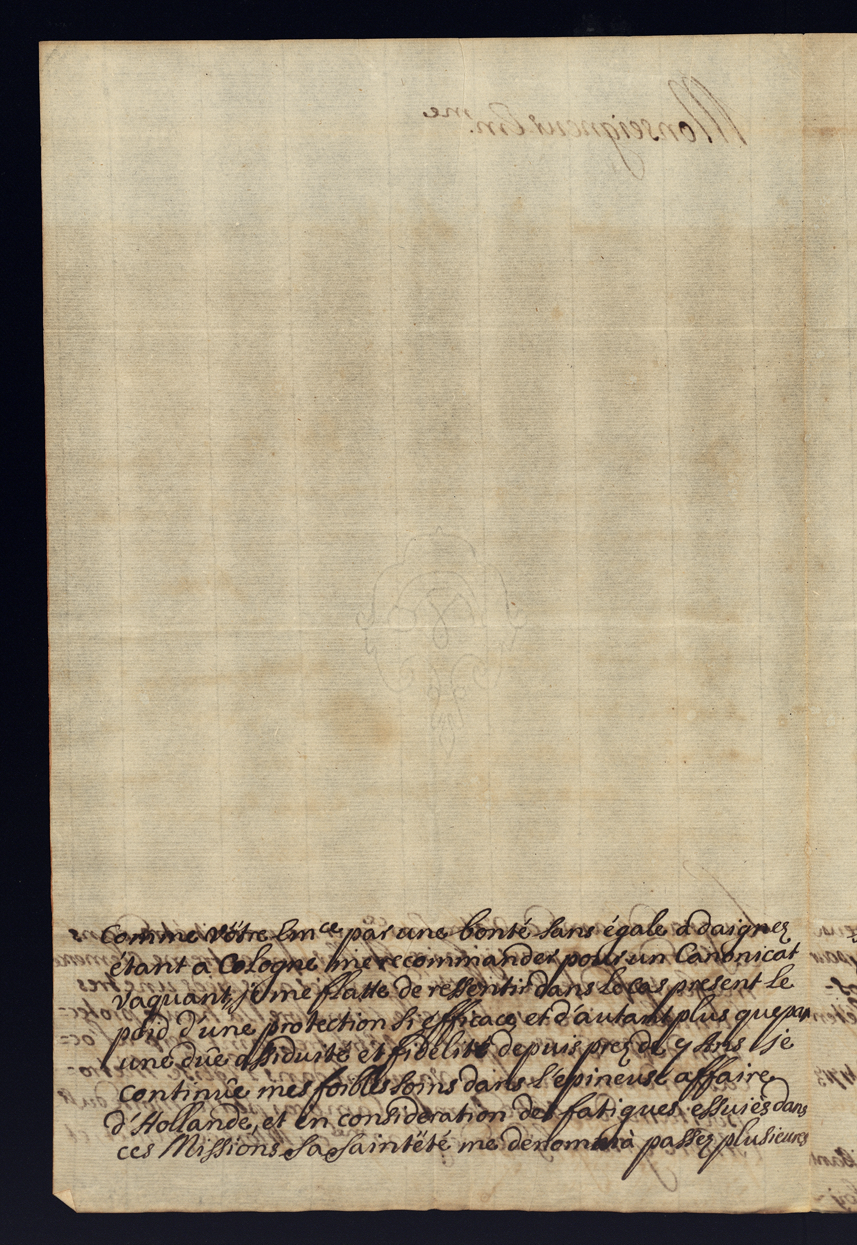 Monseigneur Em.me
Comme vôtre Emce par une bonté sans égale à daignez
étant a Cologne me recommander pour un Canonicat
vaquant, je me flatte de ressentir dans le cas present le
poid d'une protection si efficace, et d'autant plus que par
une dûe assiduité et fidelité depuis prez de 9 Ans je
continüe mes foibles soins dans l'epineuse affaire
d'Hollande, et en consideration des fatigues essuiés dans
ces Missions Sa Sainteté me denoma à passez plusieurs